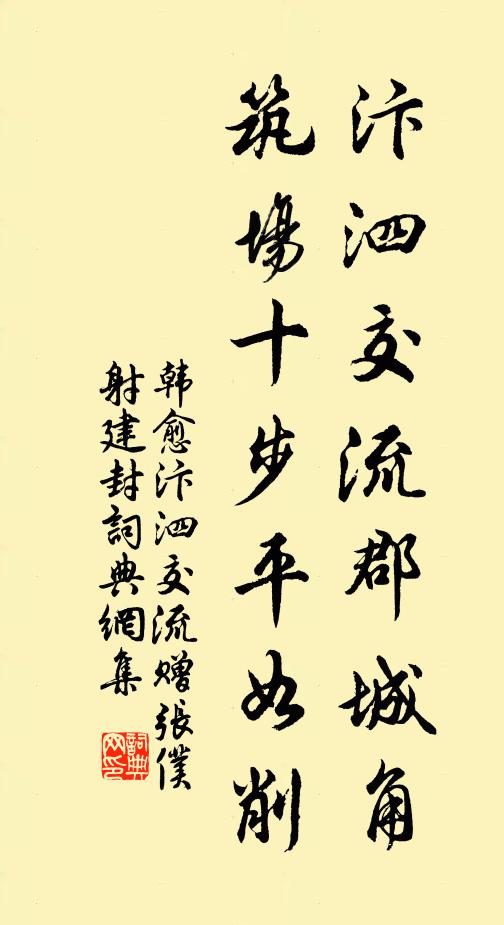 汴泗交流郡城角
筑場十步平如削
韩愈汴泗交流贈張僕
射建封詞典網集
詞典网印